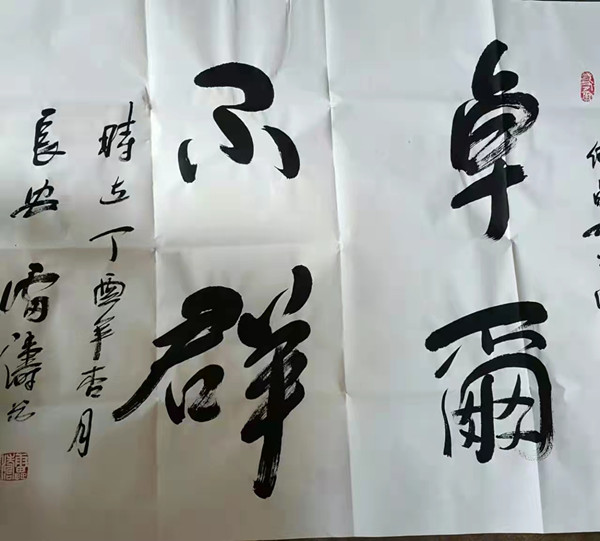 卓爾
不群
時在丁酉年杏月
長安雷濤書